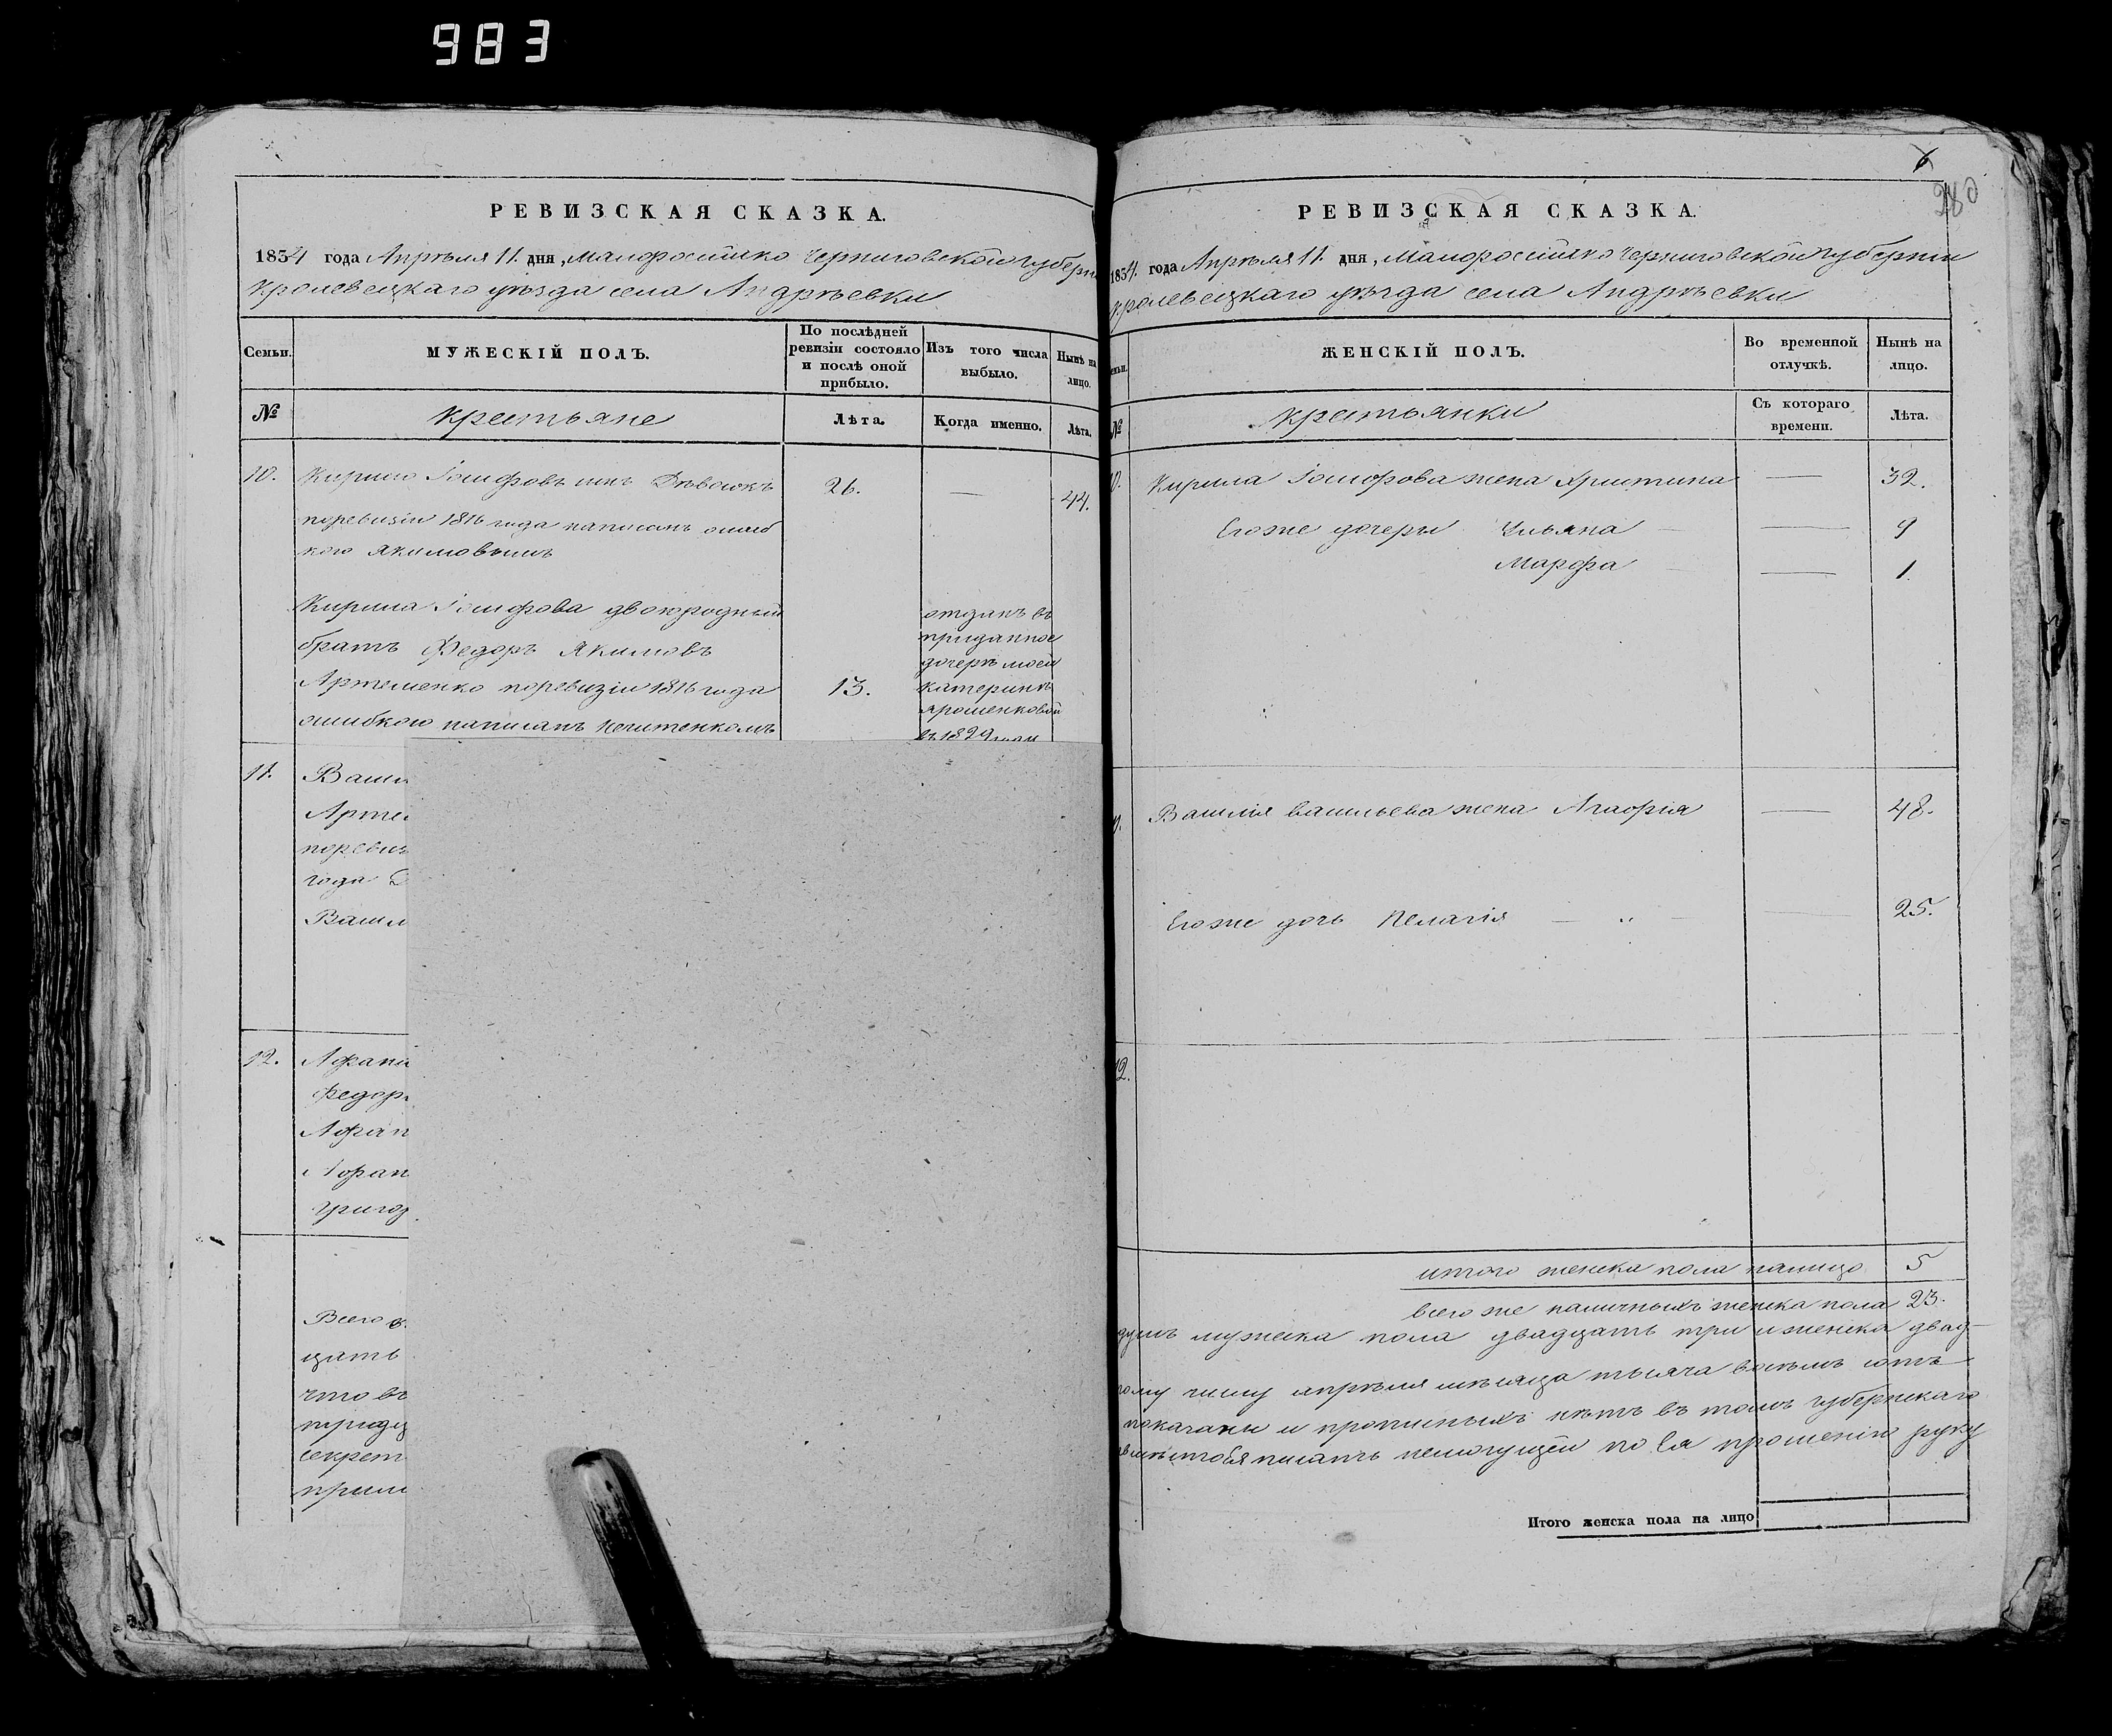 983
РЕВИЗСКАЯ СКАЗКА.
1834 года Апрѣля 11. дня, Малоросiйско Черниговской губерн
Кролевецкаго уѣзда села Андрѣевки
Семьи.
МУЖЕСКIЙ ПОЛЪ.
По послѣдней ревизiи состояло и послѣ оной прибыло.
Изъ того числа выбыло.
Нынѣ на лицо.
№
Крестьяне
Лѣта.
Когда именно.
Лѣта.
10.
Кирило Iосифовъ
26.
—
44.
поревизiи 1816 года написанъ ошиб
кого Якимовымъ
Кирила Iосифова двоюродный
братъ Федоръ Якимовъ
Артеменко поревизiи 1816 года
13.
ошибкою написанъ
отданъ въ
приданное
дочерѣ моей
Катеринѣ
Ярошенковой
въ 1829
11.
Васи
Арте
поревиз
года
Васил
12.
Афана
Федоръ
Афан
Афан
Григор
Всего в
цать
что въ
тридц
секрет
прило
6
280
РЕВИЗСКАЯ СКАЗКА.
1834. года Апрѣля 11. дня, Малоросiйско Черниговской губернiи
Кролевецкаго уѣзда села Андрѣевки
ЖЕНСКIЙ ПОЛЪ.
Во временной отлучкѣ.
Нынѣ на лицо.
№
Крестьянки
Съ котораго времени.
Лѣта.
10.
Кирила Iосифова жена Христина
—
32.
Егоже дочери Ульяна
—
9
Марфа
—
1.
Василiя Васильева жена Агафiя
—
48.
Егоже дочь Пелагiя
25.
12.
итого женска пола налицо
5
всего же наличныхъ женска пола
23.
душъ мужеска пола двадцать три и женска двад-
тому числу апрѣля мѣсяца тысяча восемь сотъ
показаны и прописныхъ нѣтъ въ томъ губернскаго
писать немогущей по Ея прошенiю руку
Итого женска пола на лицо